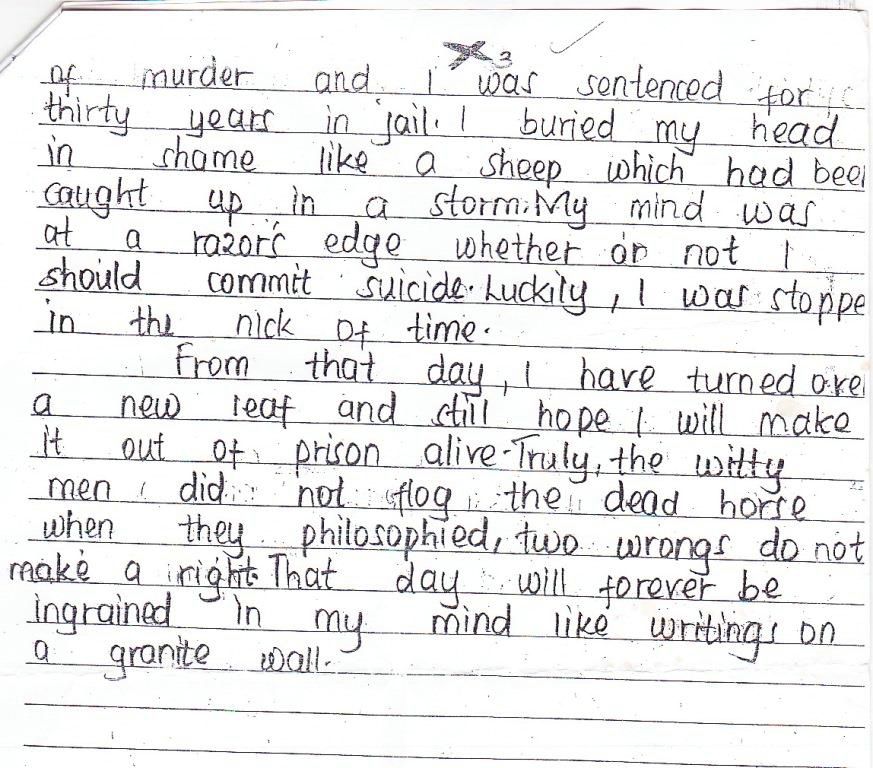 X 3
of murder and I was sentenced for
thirty years in jail. I buried my head
in shame like a sheep which had bee
caught up in a storm. My mind was
at a razor's edge whether or not I
should commit suicide. Luckily, I was stoppe
in the nick of time.
From that day, I have turned ove
a new leaf and still hope I will make
it out of prison alive. Truly, the witty
men did not flog the dead horse
when they philosophied, two wrongs do not
make a right. That day will forever be
ingrained in my mind like writings on
a granite wall.